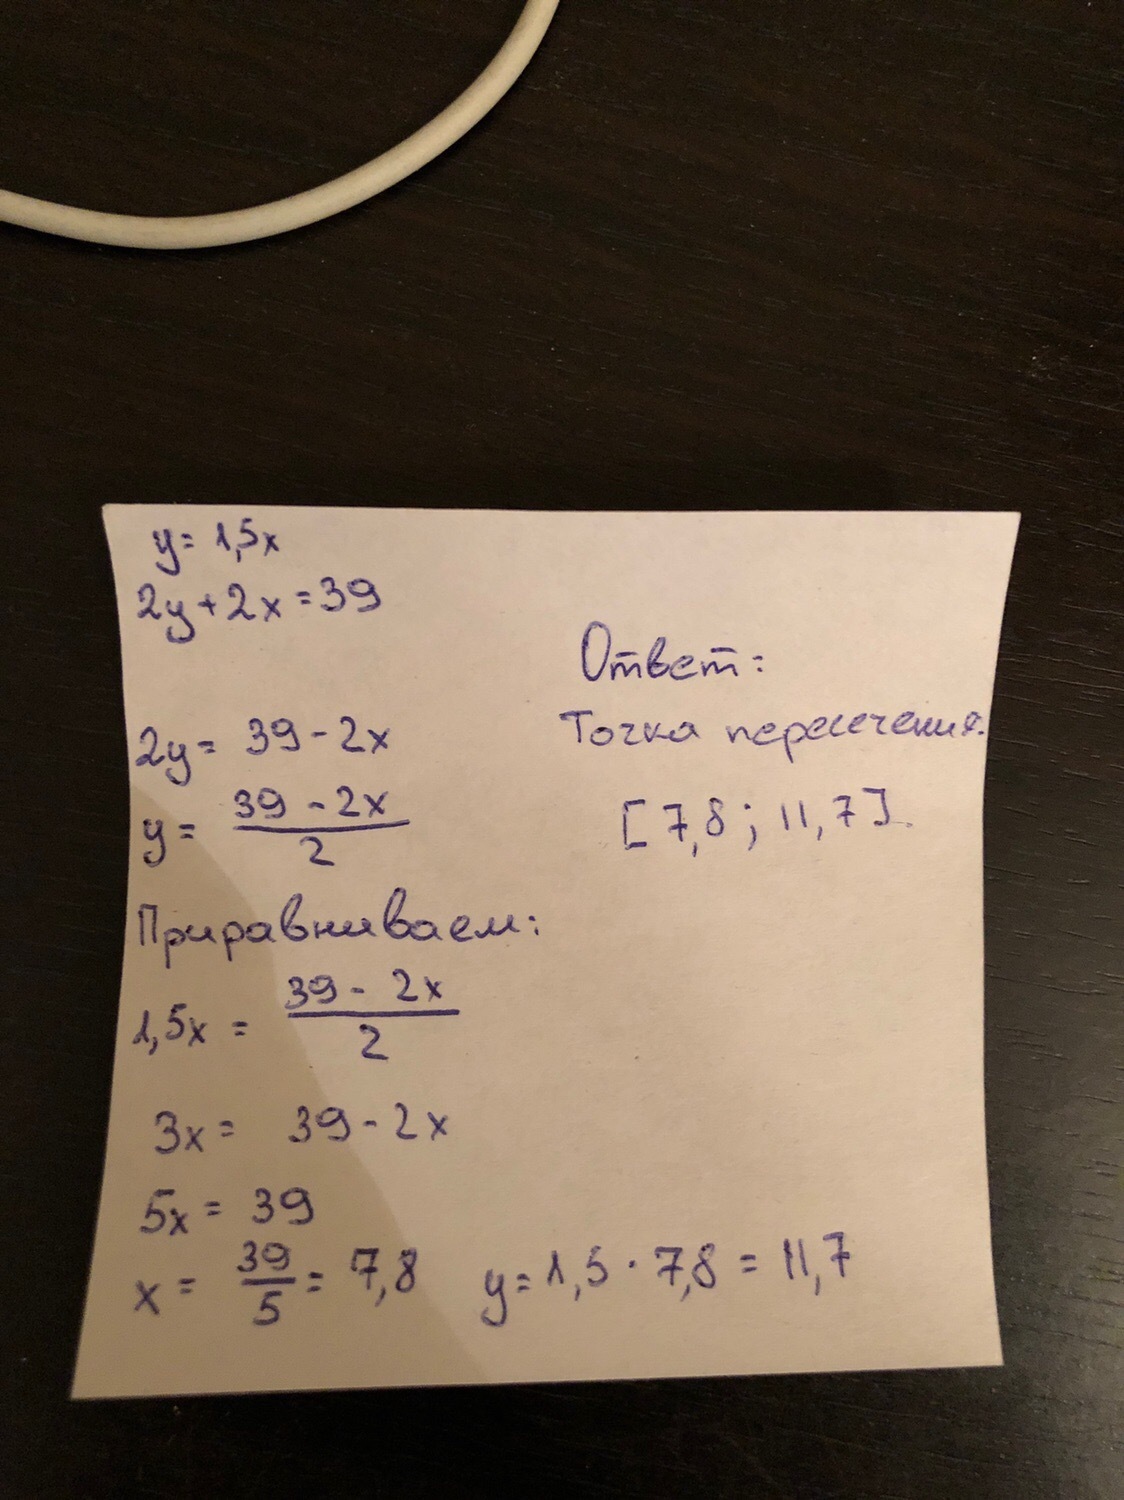 y = 1,5x
2y + 2x = 39
2y = 39 - 2x
y = \frac{39 - 2x}{2}
Приравниваем:
1,5x = \frac{39 - 2x}{2}
3x = 39 - 2x
5x = 39
x = \frac{39}{5} = 7,8 y = 1,5 · 7,8 = 11,7
Ответ:
Точка пересечения:
[7,8; 11,7].